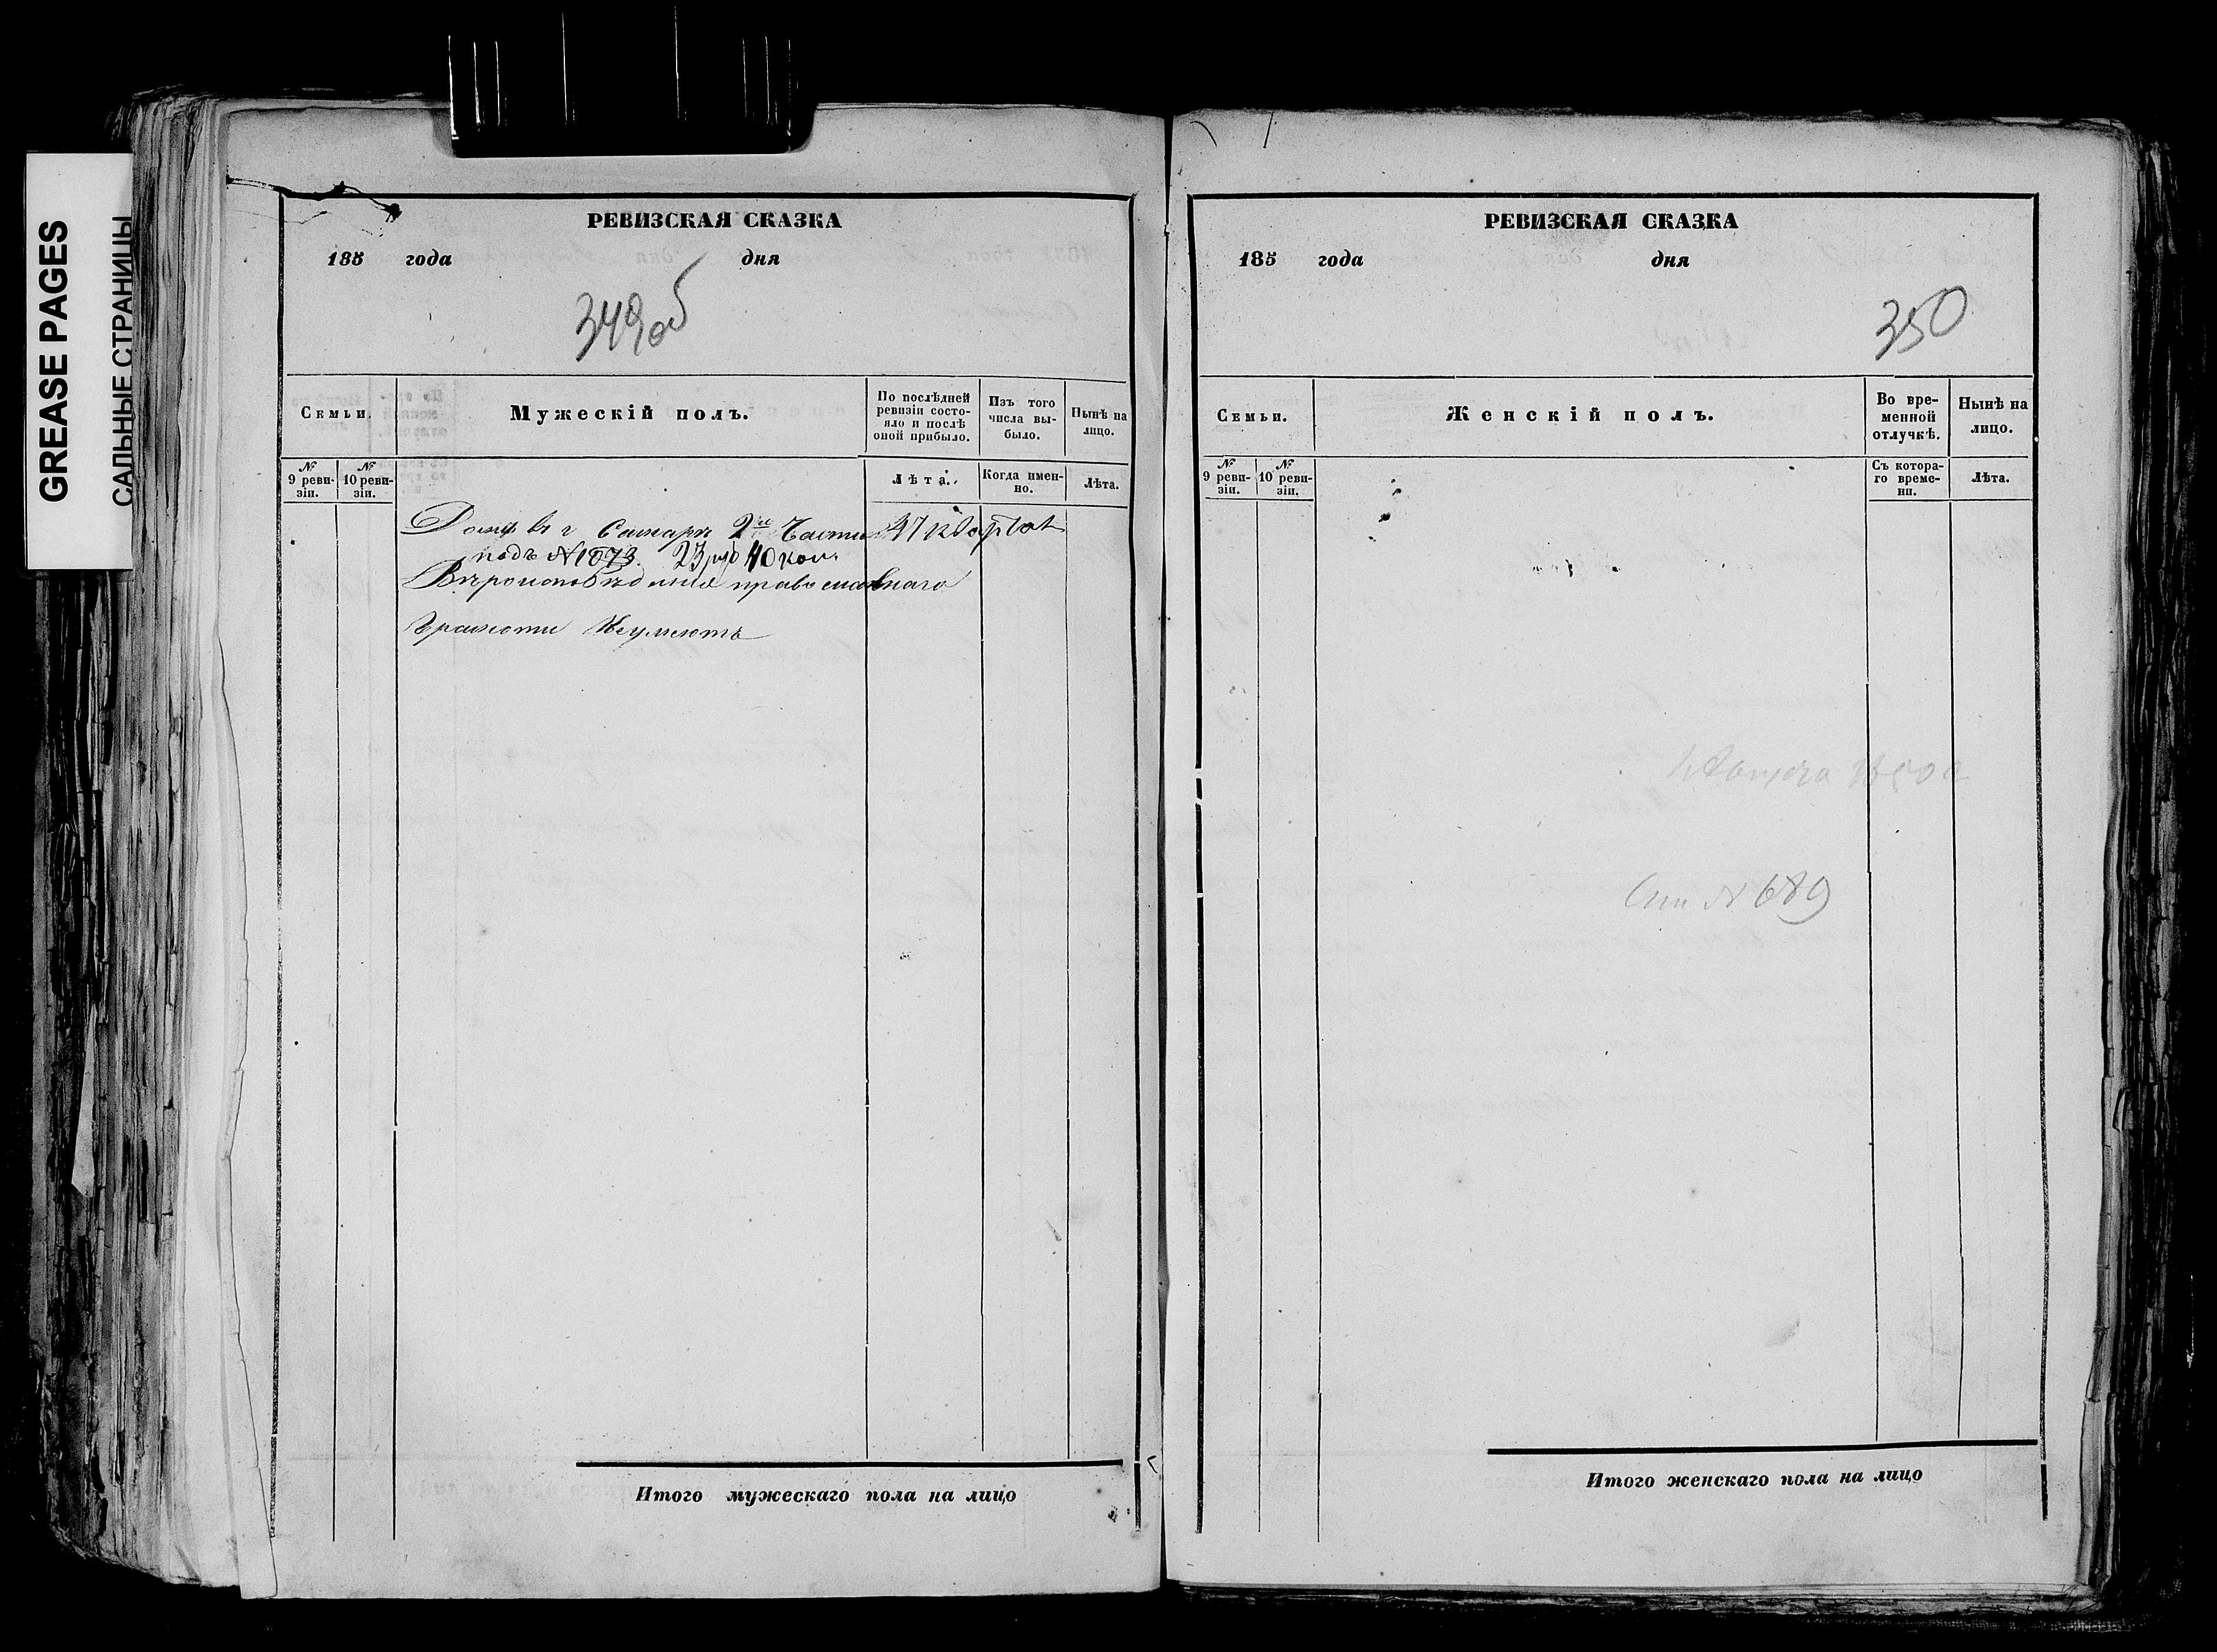 GREASE PAGES
САЛЬНЫЕ СТРАНИЦЫ
РЕВИЗСКАЯ СКАЗКА
185 года дня
349об
Семьи.
Мужескій полъ.
По послѣдней ревизіи состо-
яло и послѣ
оной прибыло.
Изъ того
числа вы-
было.
Нынѣ на
лицо.
№
9 реви-
зіи.
№
10 реви-
зіи.
Лѣта.
Когда имен-
но.
Лѣта.
Домъ въ г Самарѣ 2й Части 47 квартал
подъ № 1073. 23 руб 40 коп.
Вѣроисповѣданія православнаго
Грамоти Неумеютъ
Итого мужескаго пола на лицо
РЕВИЗСКАЯ СКАЗКА
185 года дня
350
Семьи.
Женскій полъ.
Во вре-
менной
отлучкѣ.
Нынѣ на
лицо.
№
9 реви-
зіи.
№
10 реви-
зіи.
Съ котора-
го време-
ни.
Лѣта.
№ 689
Итого женскаго пола на лицо